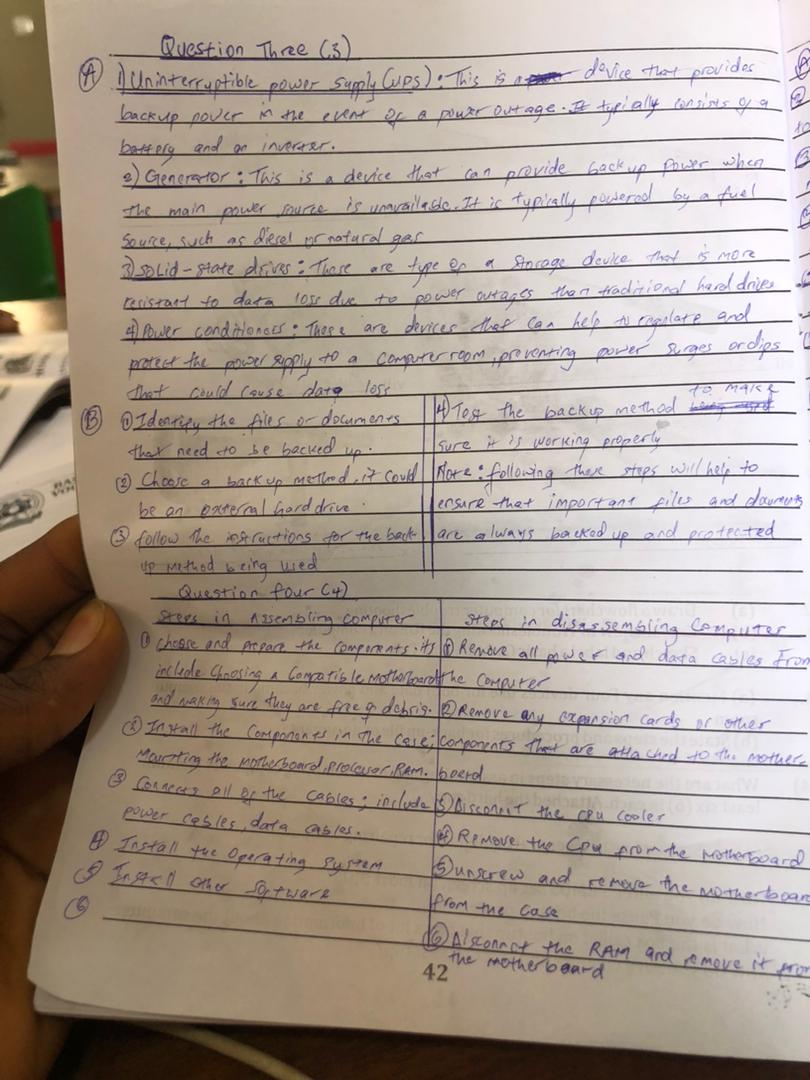 Question Three (3)
(A) 1) Uninterruptible power supply (UPS): This is a device that provides
backup power in the event of a power outage. It typically consists of a
battery and an inverter.
2) Generator: This is a device that can provide back up power when
the main power source is unavailable. It is typically powered by a fuel
source, such as diesel or natural gas
3) Solid-state drives: These are type of a storage device that is more
resistant to data loss due to power outages than traditional hard drives
4) Power conditioners: These are devices that can help to regulate and
protect the power supply to a computer room, preventing power surges or dips
that could cause data loss
(B) (1) Identify the files or documents
that need to be backed up.
(2) Choose a back up method, it could
be an external hard drive.
(3) follow the instructions for the back-
up method being used
4) Test the backup method to make
sure it is working properly
Note: following these steps will help to
ensure that important files and documents
are always backed up and protected
Question four (4)
Steps in Assembling computer
(1) choose and prepare the components. its
include choosing a compatible motherboard
and making sure they are free of debris.
(2) Install the components in the case;
mounting the motherboard, processor, RAM.
(3) Connects all of the cables; include
power cables, data cables.
(4) Install the operating system
(5) Install other software
(6)
Steps in disassembling computer
(1) Remove all power and data cables from
the computer
(2) Remove any expansion cards or other
components that are attached to the mother
board
(3) Disconnect the cpu cooler
(4) Remove the Cpu from the motherboard
(5) unscrew and remove the motherboard
from the case
(6) Disconnct the RAM and remove it from
the motherboard
42